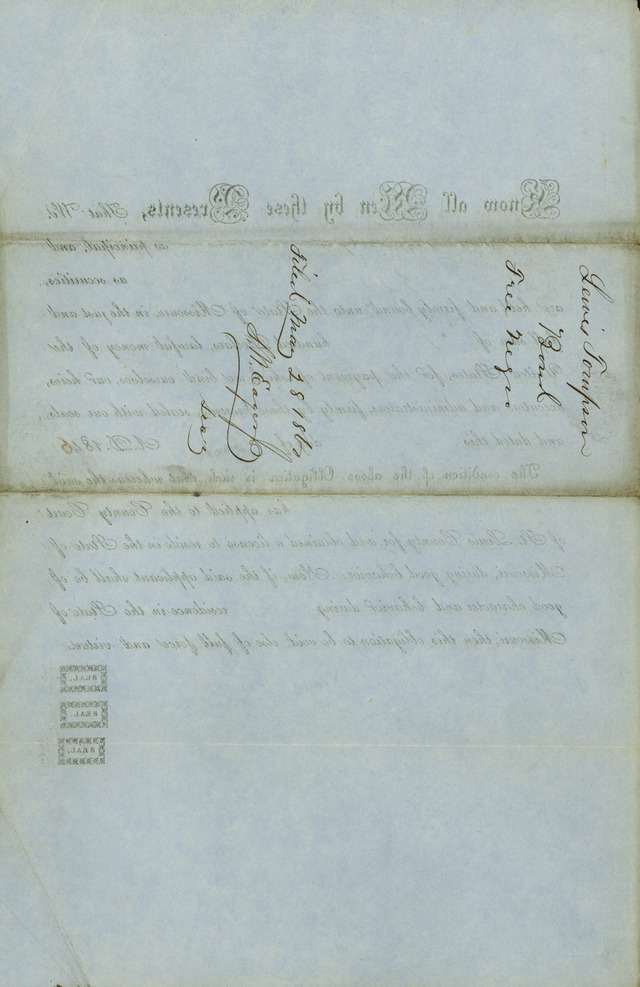 Lewis Tompson
Bond
Free Negro
Filed May 28 1846
Know all Men by these Presents, That We,
as principal, and
as securities,
are held and firmly bound unto the State of Missouri, in the just and
full sum of
hundred dollars, lawful money of the
United States, for the payment of which we bind ourselves, our heirs,
executors and administrators, firmly by these presents, sealed with our seals,
and dated this
day of
A. D. 1846
The condition of the above Obligation is such, that whereas the said
has applied to the County Court
of St. Louis County for and obtained a license to reside in the State of
Missouri, during good behavior: Now, if the said applicant shall be of
good character and behavior during
residence in the State of
Missouri, then this obligation to be void, else of full force and virtue.
SEAL.
SEAL.
SEAL.